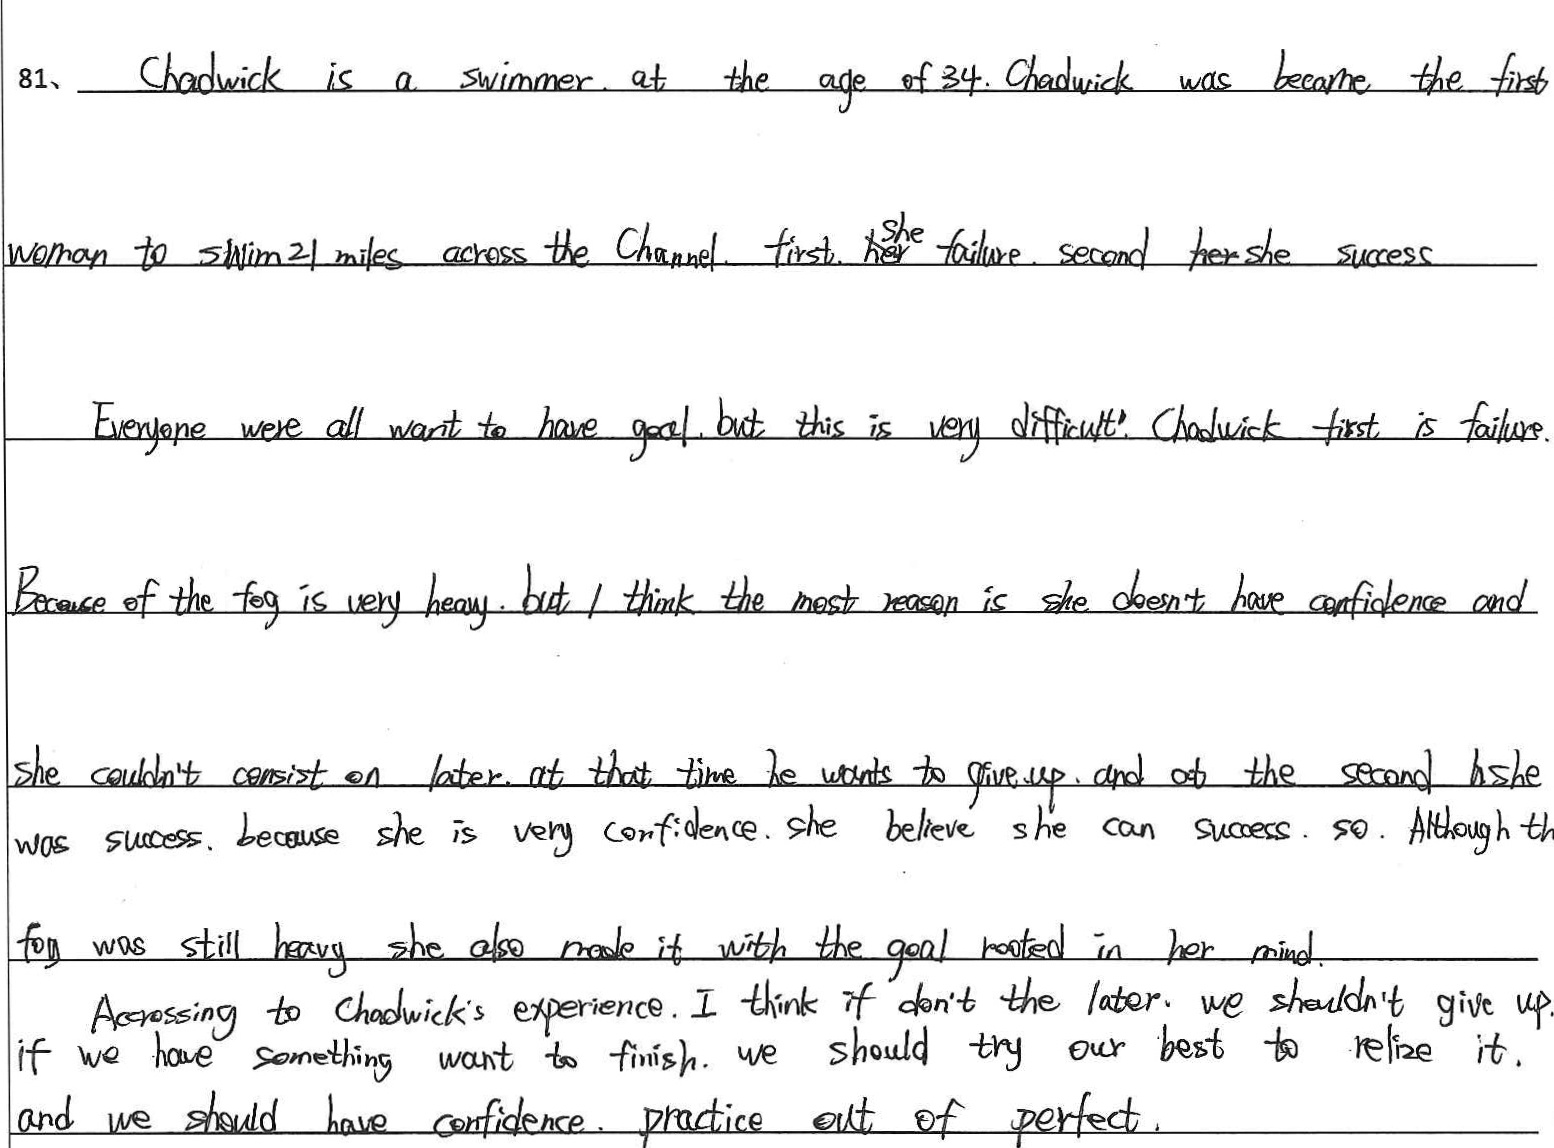 81、 Chadwick is a swimmer. at the age of 34. Chadwick was became the first
woman to swim 21 miles across the Channel. first. her she failure. second her she success
Everyone were all want to have goal. but this is very difficult. Chadwick first is failure.
Because of the fog is very heavy. but I think the most reason is she doesn't have confidence and
she couldn't consist on later. at that time he wants to give up. and at the second she
was success. because she is very confidence. she believe she can success. so. Although th
fog was still heavy she also made it with the goal rooted in her mind.
Accrossing to Chadwick's experience. I think if don't the later. we shouldn't give up.
if we have something want to finish. we should try our best to relize it.
and we should have confidence. practice out of perfect.